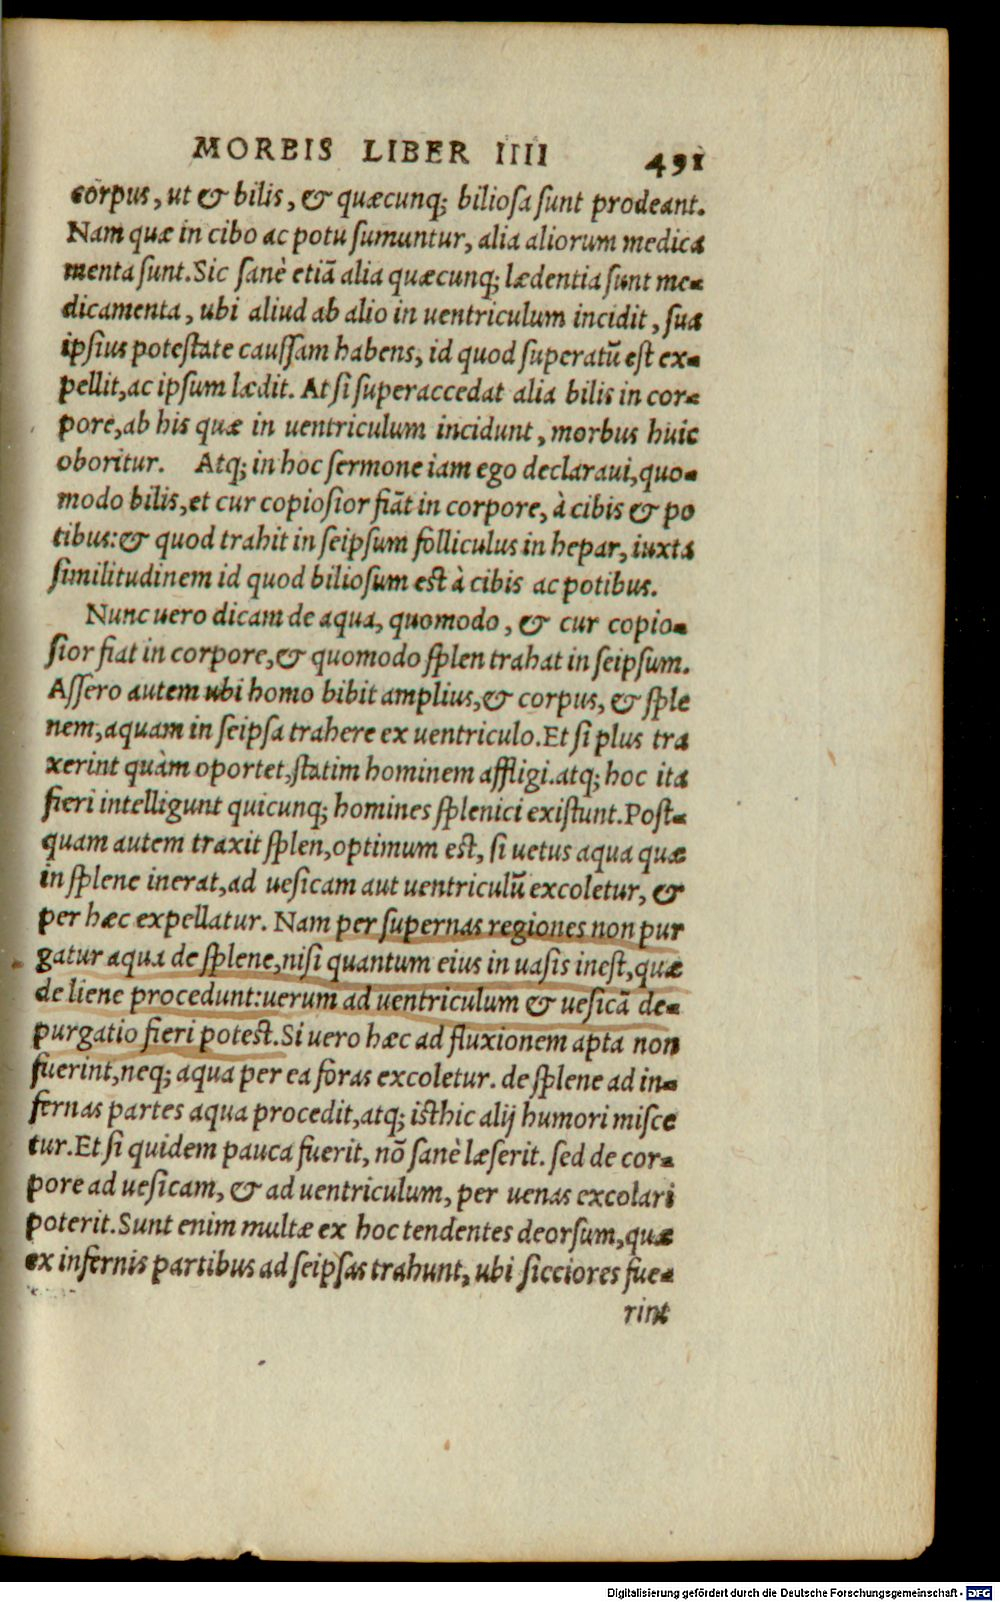 MORBIS LIBER IIII 491
corpus, ut & bilis, & quæcunq; biliosa sunt prodeant.
Nam quæ in cibo ac potu sumuntur, alia aliorum medica
menta sunt. Sic sanè etiā alia quæcunq; lædentia sunt me-
dicamenta, ubi aliud ab alio in uentriculum incidit, sua
ipsius potestate caussam habens, id quod superatū est ex-
pellit, ac ipsum lædit. At si superaccedat alia bilis in cor-
pore, ab his quæ in uentriculum incidunt, morbus huic
oboritur. Atq; in hoc sermone iam ego declaraui, quo-
modo bilis, et cur copiosior fiāt in corpore, à cibis & po
tibus: & quod trahit in seipsum folliculus in hepar, iuxta
similitudinem id quod biliosum est à cibis ac potibus.
Nunc uero dicam de aqua, quomodo, & cur copio-
sior fiat in corpore, & quomodo splen trahat in seipsum.
Assero autem ubi homo bibit amplius, & corpus, & sple
nem, aquam in seipsa trahere ex uentriculo. Et si plus tra
xerint quàm oportet, statim hominem affligi. atq; hoc ita
fieri intelligunt quicunq; homines splenici existunt. Post-
quam autem traxit splen, optimum est, si uetus aqua quæ
in splene inerat, ad uesicam aut uentriculū excoletur, &
per hæc expellatur. Nam per supernas regiones non pur
gatur aqua de splene, nisi quantum eius in uasis inest, quæ
de liene procedunt: uerum ad uentriculum & uesicā de-
purgatio fieri potest. Si uero hæc ad fluxionem apta non
fuerint, neq; aqua per ea foras excoletur. de splene ad in-
fernas partes aqua procedit, atq; isthic alij humori misce
tur. Et si quidem pauca fuerit, nō sanè læserit. sed de cor-
pore ad uesicam, & ad uentriculum, per uenas excolari
poterit. Sunt enim multæ ex hoc tendentes deorsum, quæ
ex infernis partibus ad seipsas trahunt, ubi sicciores fue-
rint
Digitalisierung gefördert durch die Deutsche Forschungsgemeinschaft - DFG